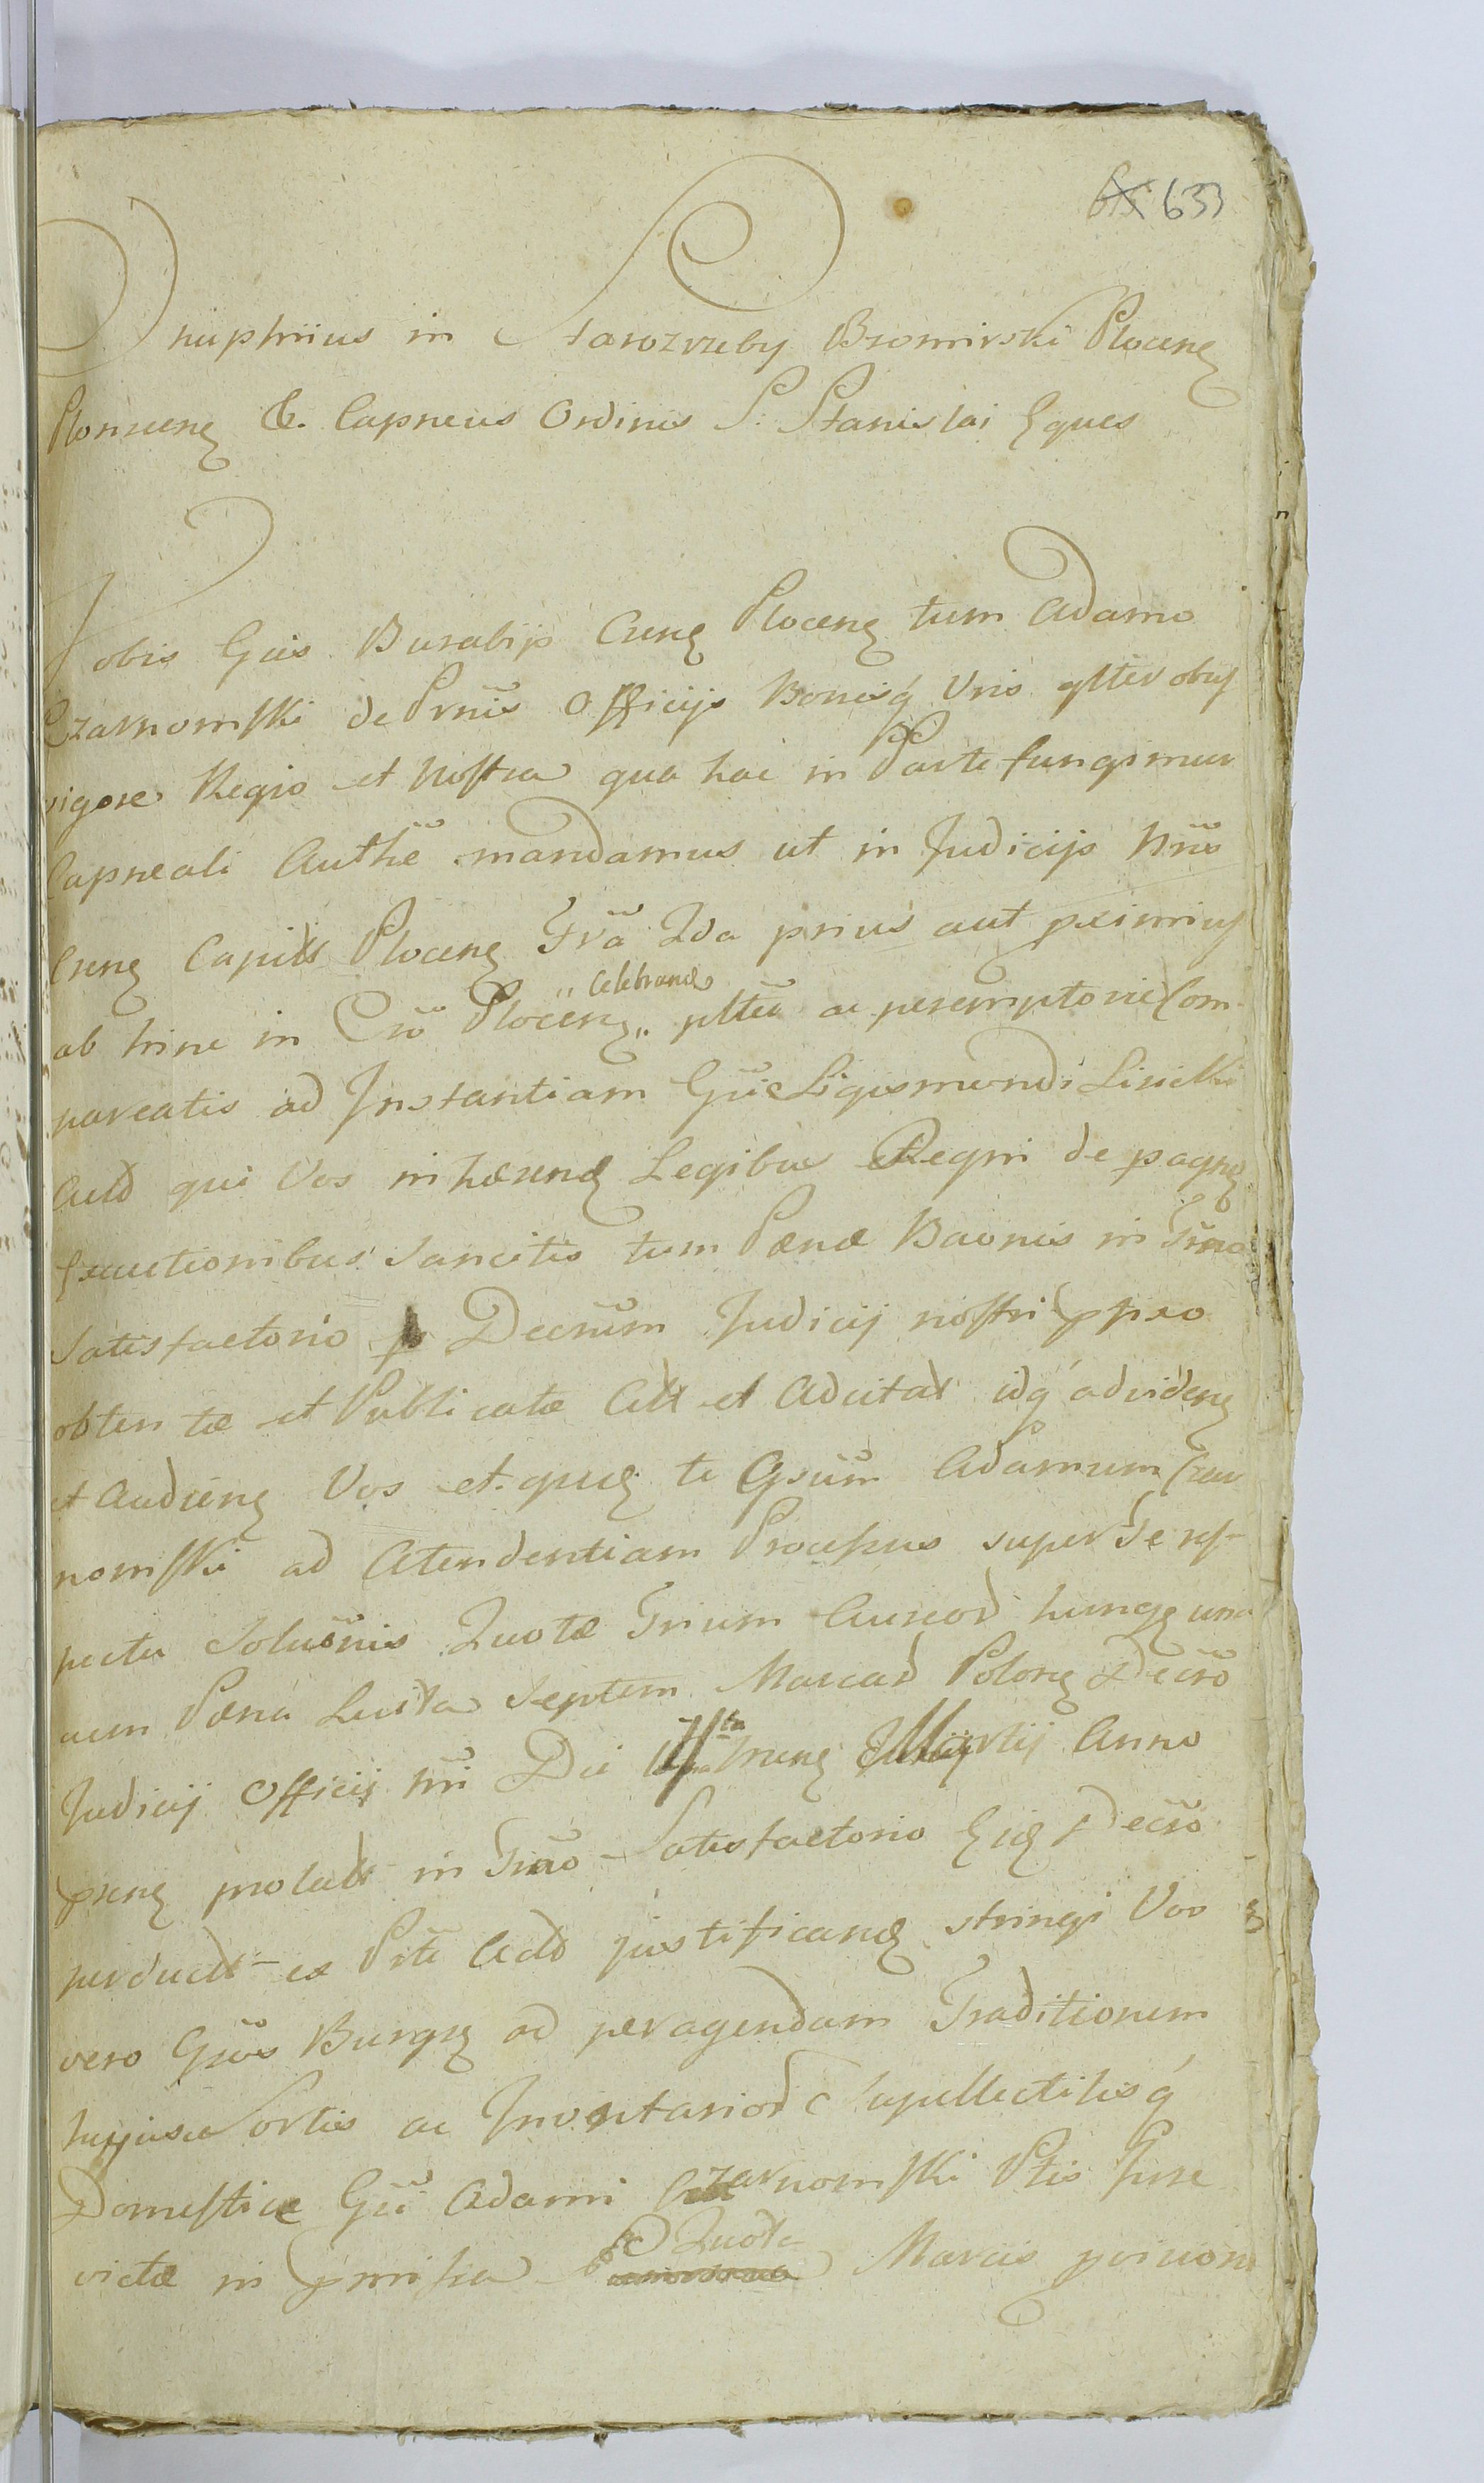 633
Onuphrius in Starozrzeby Bromirski Plocens
Plonscens &. Capneus Ordinis S. Stanislai Eques
Vobis Gnis Burabijs Crens Plocens tum Adamo
Czarnomski de Prnis Officijs Bonisq Vris gltер obus
vigore Regia et Nostra qua hac in Parte fungimur
Capneali Authe mandamus ut in Judicijs Nris
Crens Capitt Plocens Fra 2da prius aut pximius
ab hinc in Cro Plocens „ Celebrand „ pltii ac peremptorie Com-
pareatis ad Instantiam Gnie Sigismundi Lisicki
Actd qui Vos inhærend Legibus Regni de pagnd
Executionibus Sancitis tum Pænæ Baonis in Trno
Satisfactorio Decrum Judicij nostri ppso
obtentæ et Publicatæ Citt et Adcitat idq ad videns
et Audiens Vos et quid te Gnsum Adamum Czar
nomski ad Atendentiam Processus super Se res-
pectu Solutnis Quotæ Trium Aureor hungr una
cum Pæna Luita Septem Marcar Polons Decro
Judicij Officij nri Die hrens Martij Anno
prens prolatt in Trno Satisfactorio Eid Decro
perductt ex Prte Actd justificand stringi Vos
vero Gnos Burgrs ad peragendam Traditionem
hujus Sortis ac Inventarior Supellectilisq
Domesticæ Gni Adami Czarnomski Ptis Jure
victæ in pmissa Quota Marcis